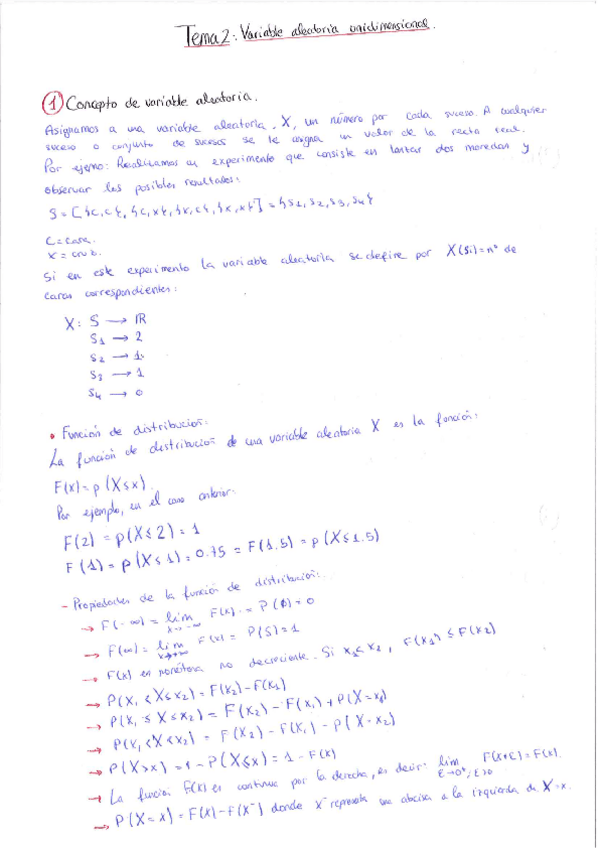 Tema 2: Variable aleatoria unidimensional.
① Concepto de variable aleatoria.
Asignamos a una variable aleatoria, X, un número por cada suceso. A cualquier
suceso o conjunto de sucesos se le asigna un valor de la recta real.
Por ejemo: Realizamos un experimento que consiste en lanzar dos monedas y
observar los posibles resultados:
S = [{c,c}, {c,x}, {x,c}, {x,x}] = {s1, s2, s3, s4}
C = cara.
X = cruz.
Si en este experimento la variable aleatoria se define por X(Si) = nº de
caras correspondientes:
X: S → ℝ
S1 → 2
S2 → 1
S3 → 1
S4 → 0
• Función de distribución:
La función de distribución de una variable aleatoria X es la función:
F(x) = p(X≤x).
Por ejemplo, en el caso anterior:
F(2) = p(X≤2) = 1
F(1) = p(X≤1) = 0.75 = F(1.5) = p(X≤1.5)
- Propiedades de la función de distribución:
→ F(-∞) = lim x→-∞ F(x) = P(∅) = 0
→ F(∞) = lim x→∞ F(x) = P(S) = 1
→ F(x) es monótona no decreciente. Si x1<x2, F(x1) ≤ F(x2)
→ P(x1 < X ≤ x2) = F(x2) - F(x1)
→ P(x1 ≤ X ≤ x2) = F(x2) - F(x1) + P(X = x1)
→ P(x1 < X < x2) = F(x2) - F(x1) - p(X = x2)
→ P(X>x) = 1 - P(X≤x) = 1 - F(x)
→ La función F(x) es continua por la derecha, es decir: lim ε→0⁺, ε>0 F(x+ε) = F(x).
→ P(X = x) = F(x) - F(x⁻) donde x⁻ representa una abcisa a la izquierda de X=x.